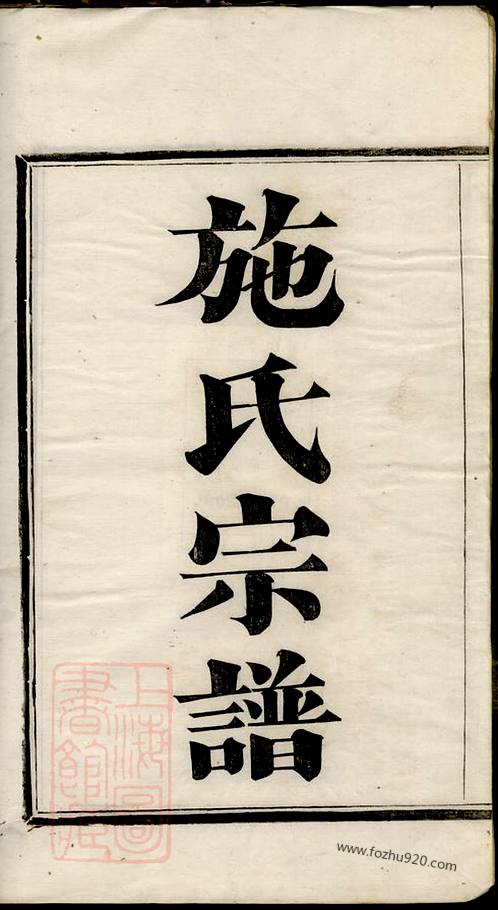 施氏宗譜
上海圖
書館藏
www.fozhu920.com